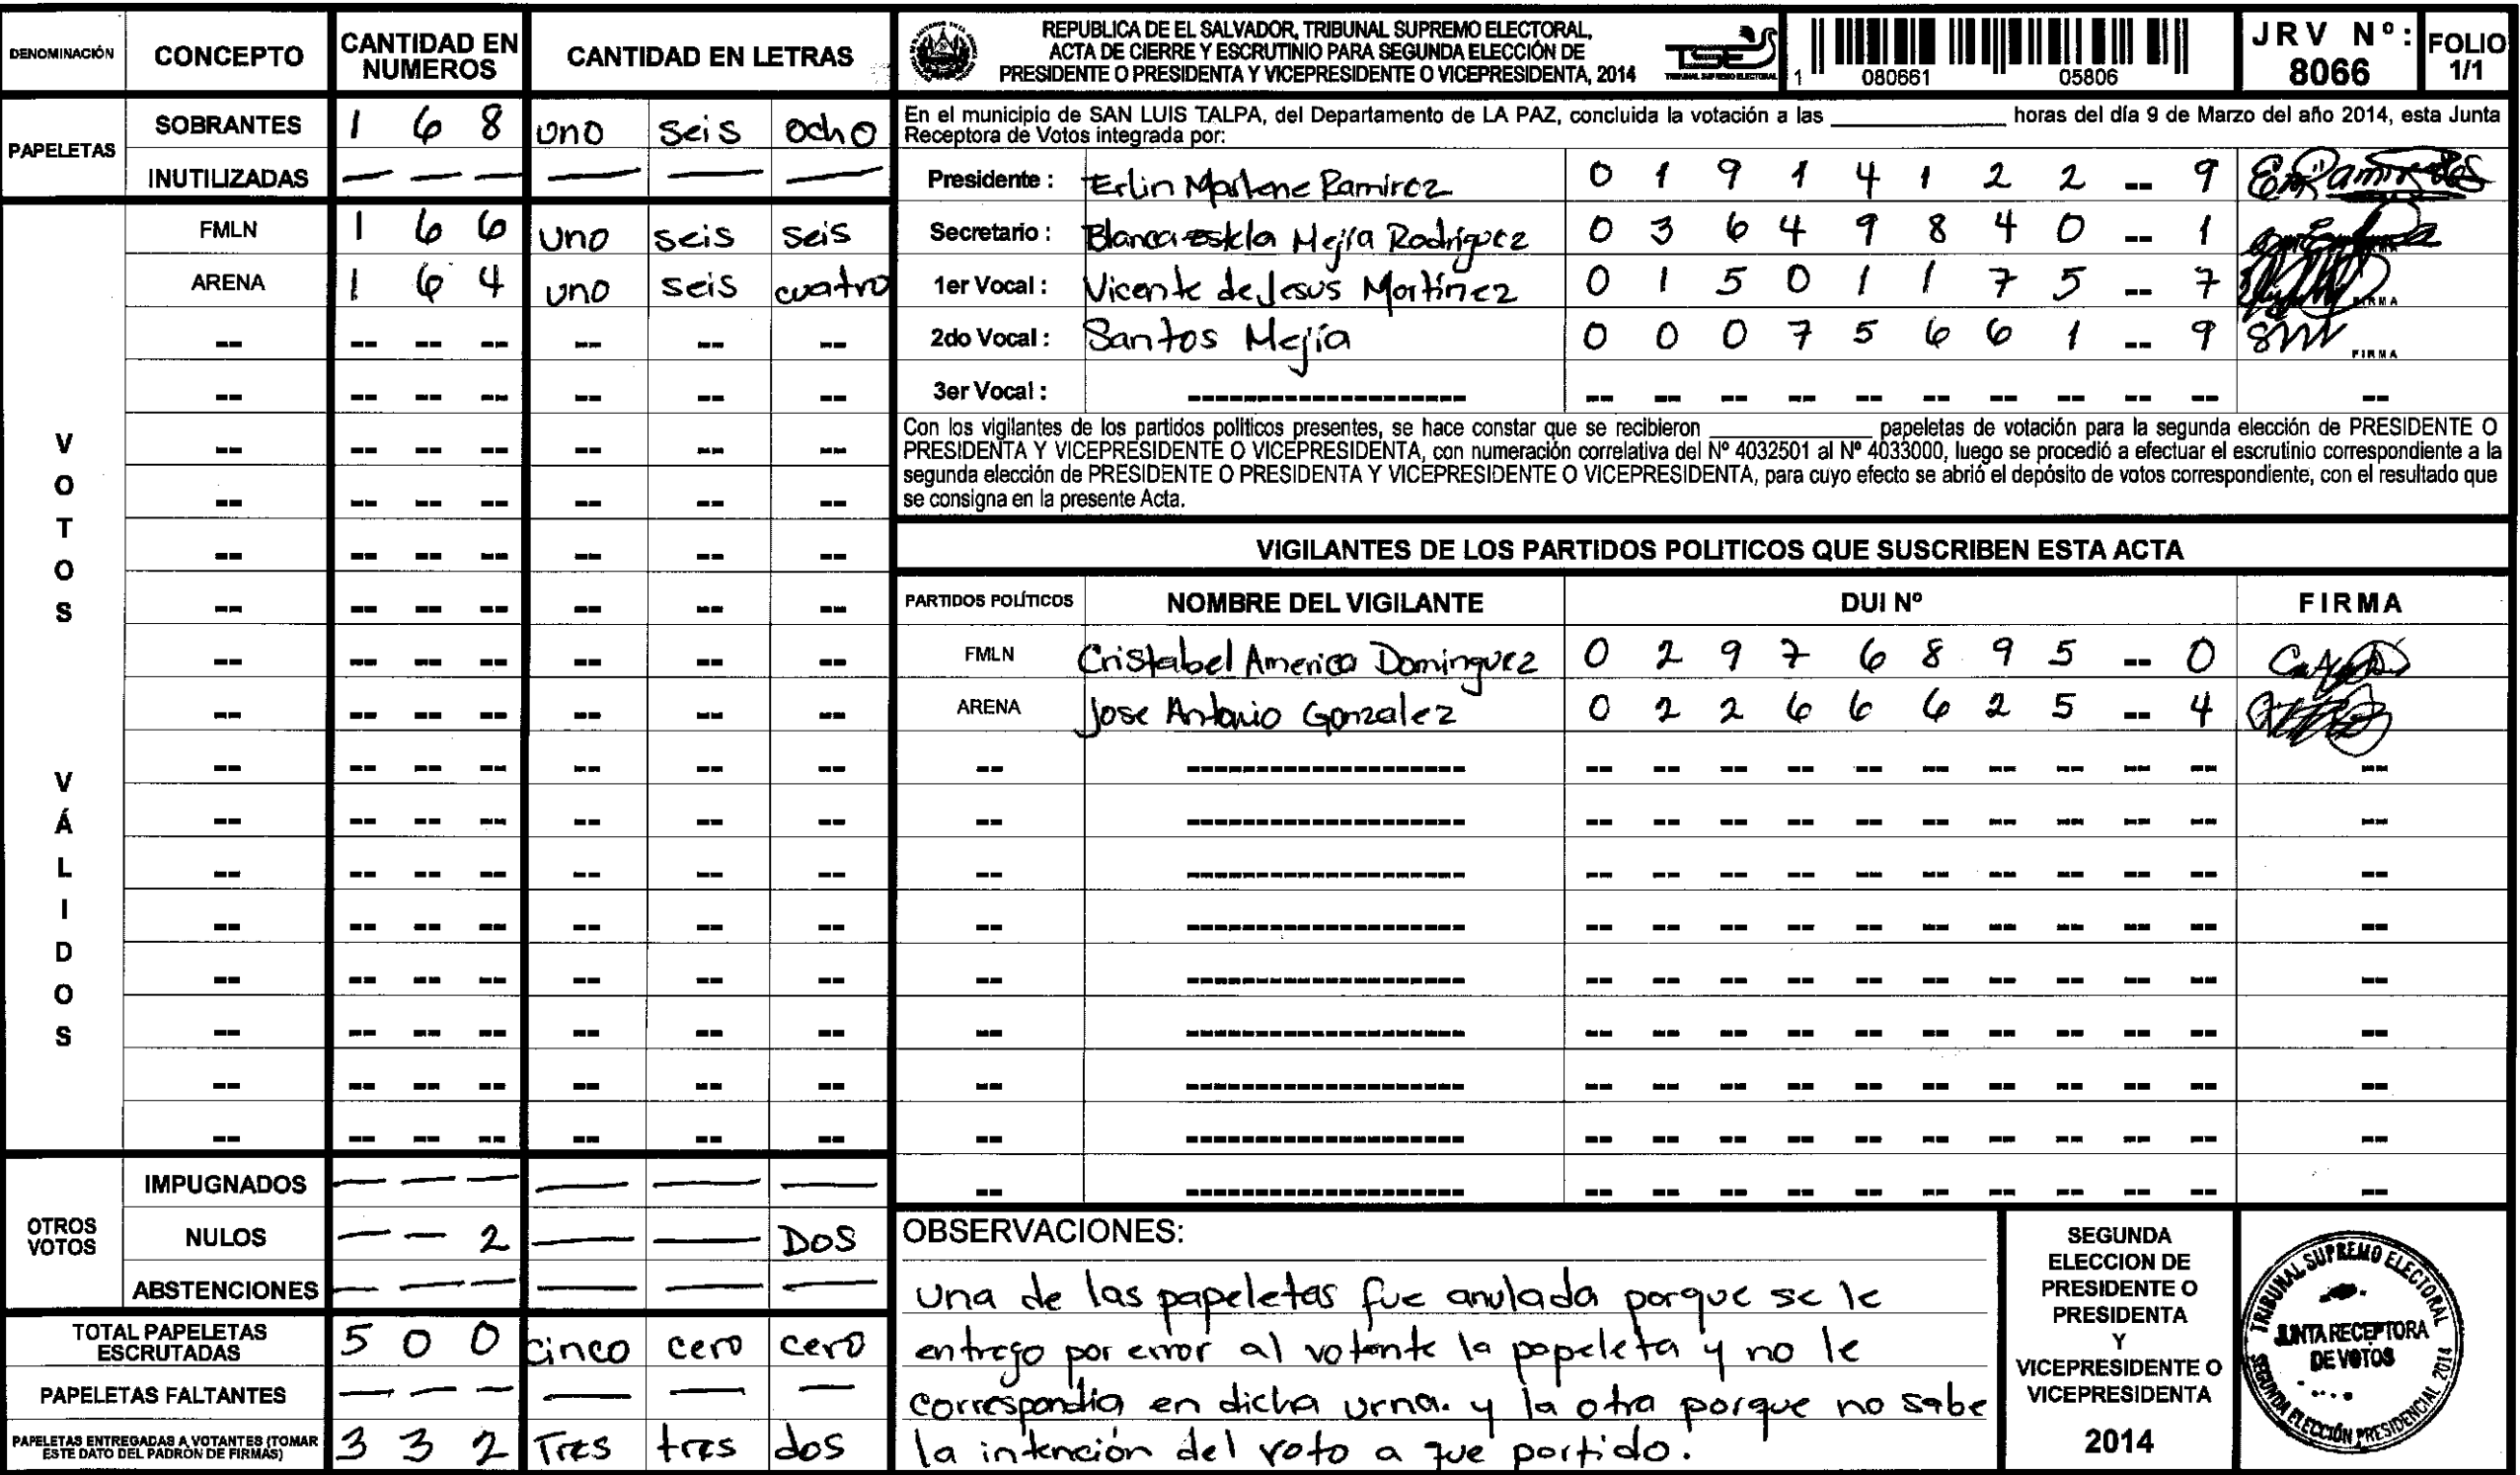 DENOMINACIÓN CONCEPTO CANTIDAD EN NUMEROS CANTIDAD EN LETRAS
PAPELETAS
SOBRANTES 1 6 8 uno seis ocho
INUTILIZADAS — — — — — —
VOTOS VÁLIDOS
FMLN 1 6 6 uno seis seis
ARENA 1 6 4 uno seis cuatro
OTROS VOTOS
IMPUGNADOS — — — — — —
NULOS — — 2 — — DOS
ABSTENCIONES — — — — — —
TOTAL PAPELETAS ESCRUTADAS 5 0 0 cinco cero cero
PAPELETAS FALTANTES — — — — — —
PAPELETAS ENTREGADAS A VOTANTES (TOMAR ESTE DATO DEL PADRÓN DE FIRMAS) 3 3 2 Tres tres dos
REPUBLICA DE EL SALVADOR, TRIBUNAL SUPREMO ELECTORAL,
ACTA DE CIERRE Y ESCRUTINIO PARA SEGUNDA ELECCIÓN DE
PRESIDENTE O PRESIDENTA Y VICEPRESIDENTE O VICEPRESIDENTA, 2014
TSE
TRIBUNAL SUPREMO ELECTORAL
1 080661 05806
JRV Nº: 8066
FOLIO 1/1
En el municipio de SAN LUIS TALPA, del Departamento de LA PAZ, concluida la votación a las ____________ horas del día 9 de Marzo del año 2014, esta Junta
Receptora de Votos integrada por:
Presidente : Erlin Marlene Ramirez 0 1 9 1 4 1 2 2 -- 9
Secretario : Blanca Estela Mejía Rodríguez 0 3 6 4 9 8 4 0 -- 1
1er Vocal : Vicente de Jesus Martínez 0 1 5 0 1 1 7 5 -- 7
2do Vocal : Santos Mejía 0 0 0 7 5 6 6 1 -- 9 FIRMA
3er Vocal :
Con los vigilantes de los partidos políticos presentes, se hace constar que se recibieron ____________ papeletas de votación para la segunda elección de PRESIDENTE O
PRESIDENTA Y VICEPRESIDENTE O VICEPRESIDENTA, con numeración correlativa del Nº 4032501 al Nº 4033000, luego se procedió a efectuar el escrutinio correspondiente a la
segunda elección de PRESIDENTE O PRESIDENTA Y VICEPRESIDENTE O VICEPRESIDENTA, para cuyo efecto se abrió el depósito de votos correspondiente, con el resultado que
se consigna en la presente Acta.
VIGILANTES DE LOS PARTIDOS POLITICOS QUE SUSCRIBEN ESTA ACTA
PARTIDOS POLÍTICOS NOMBRE DEL VIGILANTE DUI Nº FIRMA
FMLN Cristabel America Dominguez 0 2 9 7 6 8 9 5 -- 0
ARENA Jose Antonio Gonzalez 0 2 2 6 6 6 2 5 -- 4
OBSERVACIONES:
Una de las papeletas fue anulada porque se le
entrego por error al votante la papeleta y no le
correspondia en dicha urna. y la otra porque no sabe
la intención del voto a que partido.
SEGUNDA
ELECCION DE
PRESIDENTE O
PRESIDENTA
Y
VICEPRESIDENTE O
VICEPRESIDENTA
2014
TRIBUNAL SUPREMO ELECTORAL
JUNTA RECEPTORA
DE VOTOS
SEGUNDA ELECCIÓN PRESIDENCIAL 2014